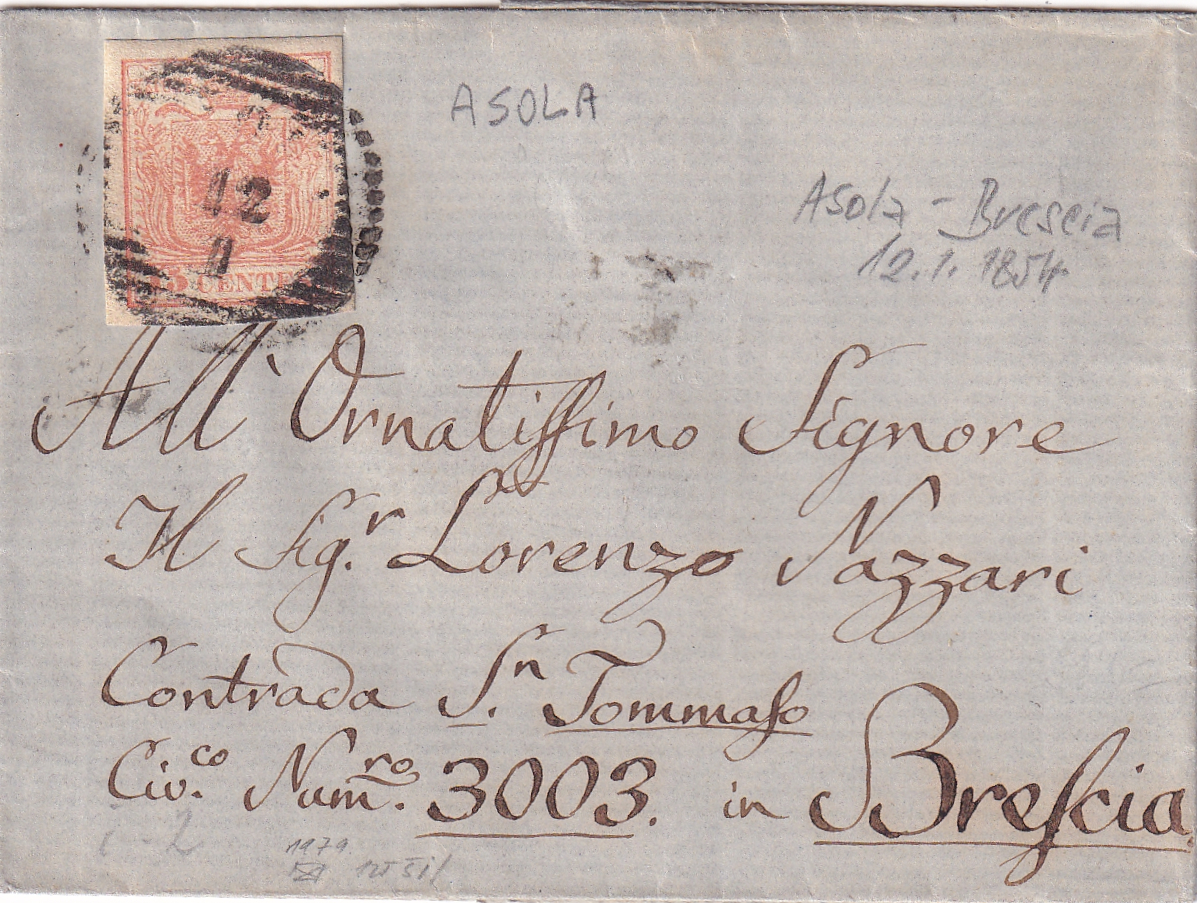 ASOLA
12
CENTE
Asola - Brescia
12.1.1854
All' Ornatiſſimo Signore
Il Sig.r Lorenzo Nazzari
Contrada S.n Tommaſo
Civ.co Num.ro 3003. in Breſcia
1979